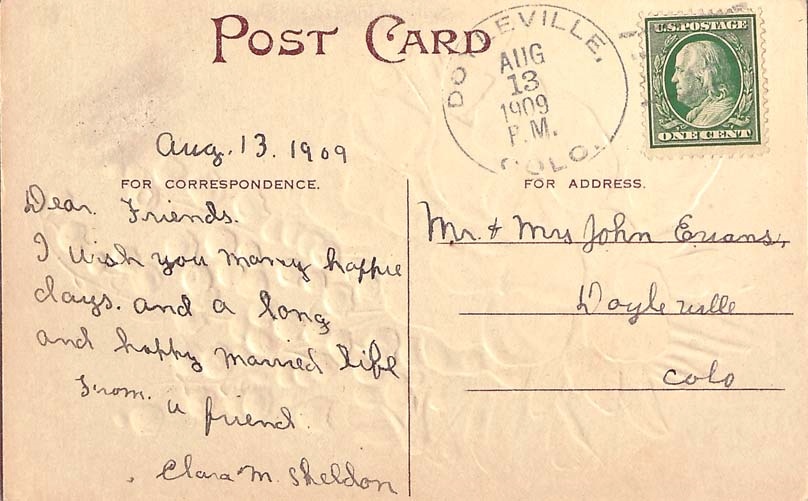 POST CARD
DOYLEVILLE,
AUG
13
1909
P.M.
COLO.
U.S. POSTAGE
ONE CENT
Aug. 13. 1909
FOR CORRESPONDENCE.
Dear. Friends.
I wish you marry happie
days. and a long
and happy married life
From. a friend.
Clara M. Sheldon
FOR ADDRESS.
Mr. & Mrs John Evans,
Doyleville
Colo